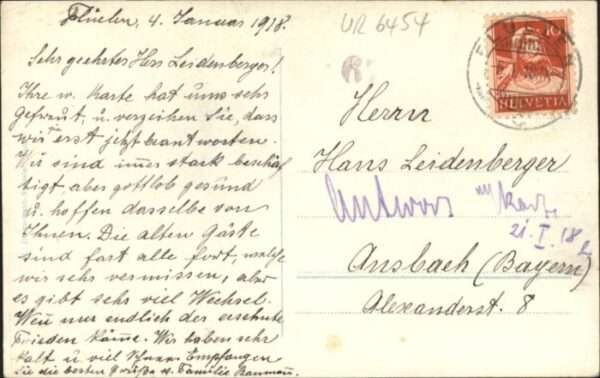 Flüelen, 4. Januar 1918.
Sehr geehrter Herr Leidenberger!
Ihre w. Karte hat uns sehr
Gefreut, u. verzeihen Sie, dass
wir erst jetzt beantworten.
Wir sind immer stark beschäf
tigt aber gottlob gesund
u. hoffen dasselbe von
Ihnen. Die alten Gäste
sind fast alle fort, welche
wir sehr vermissen, aber
es gibt sehr viel Wechsel.
Wenn nur endlich der ersehnte
Frieden käme. Wir haben sehr
kalt u viel Schnee. Empfangen
Sie die besten Grüße v. Familie
UR 6454
FLUELEN
10
HELVETIA
Herrn
Hans Leidenberger
Antwort Karte
21. I. 18
Ansbach (Bayern)
Alexanderst. 8